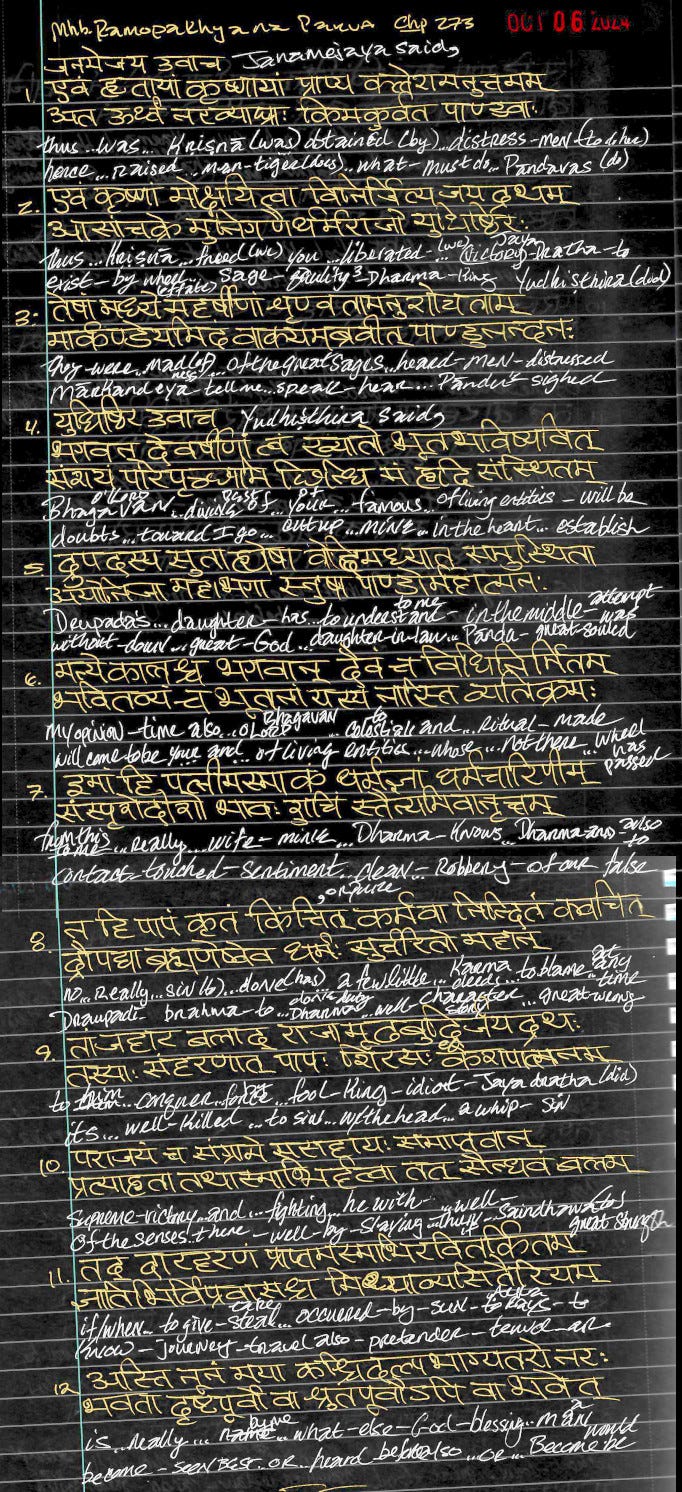 Mhb Ramopakhyana Parva Chp 273 OCT 06 2024
जनमेजय उवाच Janamejaya said,
1. एवं हृतायां कृष्णायां प्राप्य क्लेशमनुत्तमम्
अत ऊर्ध्वं नरव्याघ्राः किमकुर्वत पाण्डवाः
thus...was...Krisnā (was) obtained (by)...distress-men (to do has)
hence...raised...man-tiger (does)...what-must do...Pandavas (do)
2. एवं कृष्णां मोक्षयित्वा विनिर्जित्य जयद्रथम्
आसांचक्रे मुनिगणैर्धर्मराजो युधिष्ठिरः
thus...Krisnā...freed (we) you...liberated-(we) victory Jaya Dratha-to
exist-by wheel...Sage-Dharma-King Yudhisthira (did)
3. तेषां मध्ये महर्षीणां शृण्वतामनुशोचताम्
मार्कण्डेयमिदं वाक्यमब्रवीत् पाण्डुनन्दनः
they-were...mad (of) ness...of the great sages...heard-men-distressed
Mārkandeya tell me...speak-hear...Pandu's-sighed
4. युधिष्ठिर उवाच Yudhisthira said,
भगवन् देवर्षीणां त्वं ख्यातो भूतभविष्यवित्
संशयं परिपृच्छामि छिन्धि मे हृदि संस्थितम्
Bhagavan O Lord...divine...of...your...famous...of living entities-will be
doubts...toward I go...cut up...mine...in the heart...establish
5. द्रुपदस्य सुता ह्येषा वेदिमध्यात् समुत्थिता
अयोनिजा महाभागा स्नुषा पाण्डोर्महात्मनः
Drupada's...daughter-has...to understand to me-in the middle-attempt was
without-down...great-God...daughter-in-law...Panda-great-souled
6. मन्ये कालश्च भगवान् दैवं च विधिनिर्मितम्
भवितव्यं च भूतानां यस्य नास्ति व्यतिक्रमः
my opinion-time also...O Lord Bhagavan...to celestials and...Ritual-made
will come to be your and...of living entities...whose...not there...wheel has passed
7. इमां हि पत्नीमस्माकं धर्मज्ञां धर्मचारिणीम्
संस्पृशेदीदृशो भावः शुचिं स्तैन्यमिवानृतम्
from this to me...really...wife-mine...Dharma-knows...Dharma and-also to
contact-touched-Sentiment...clean...Robbery-of our false
, or quite
8. न हि पापं कृतं किंचित् कर्म वा निन्दितं क्वचित्
द्रौपद्या ब्राह्मणेष्वेव धर्मः सुचरितो महान्
no...Really...sin (to)...done (has) a few little...Karma deeds...to blame-at any time
Draupadi-brahma-to...Dharma done duty...well-character...great wrong
9. तां जहार बलाद् राजा मूढबुद्धिर्जयद्रथः
तस्याः संहरणात् पापः शिरसः केशपातनम्
to them...conquer force...fool-King-idiot-Jayadratha (did)
its...well-killed...to sin...w/the head...a whip-sin
10. पराजयं च संग्रामे ससहायः समाप्तवान्
प्रत्याहृता तथास्माभिर्हत्वा तत् सैन्धवं बलम्
supreme-victory...and...fighting...he with...well-
of the senses...there-well-by-slaying...Saindhava (to) great strength
11. तद् दारहरणं प्राप्तमस्माभिरवितर्कितम्
ज्ञातिभिर्विप्रवासश्च मिथ्याव्यसितैरियम्
if/when...to give-take steal...occured-by-sun-to Rays-to
know-journey-travel also-pretender-
12. अस्ति नूनं मया कश्चिदल्पभाग्यतरो नरः
भवता दृष्टपूर्वो वा श्रुतपूर्वोऽपि वा भवेत्
is...really...by me...what-else-God-blessing...man would
become-seen Best...or...heard before also...or...Become be